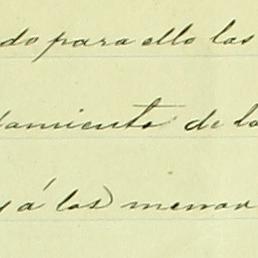 do para ello las
amiento de la
y á los menor